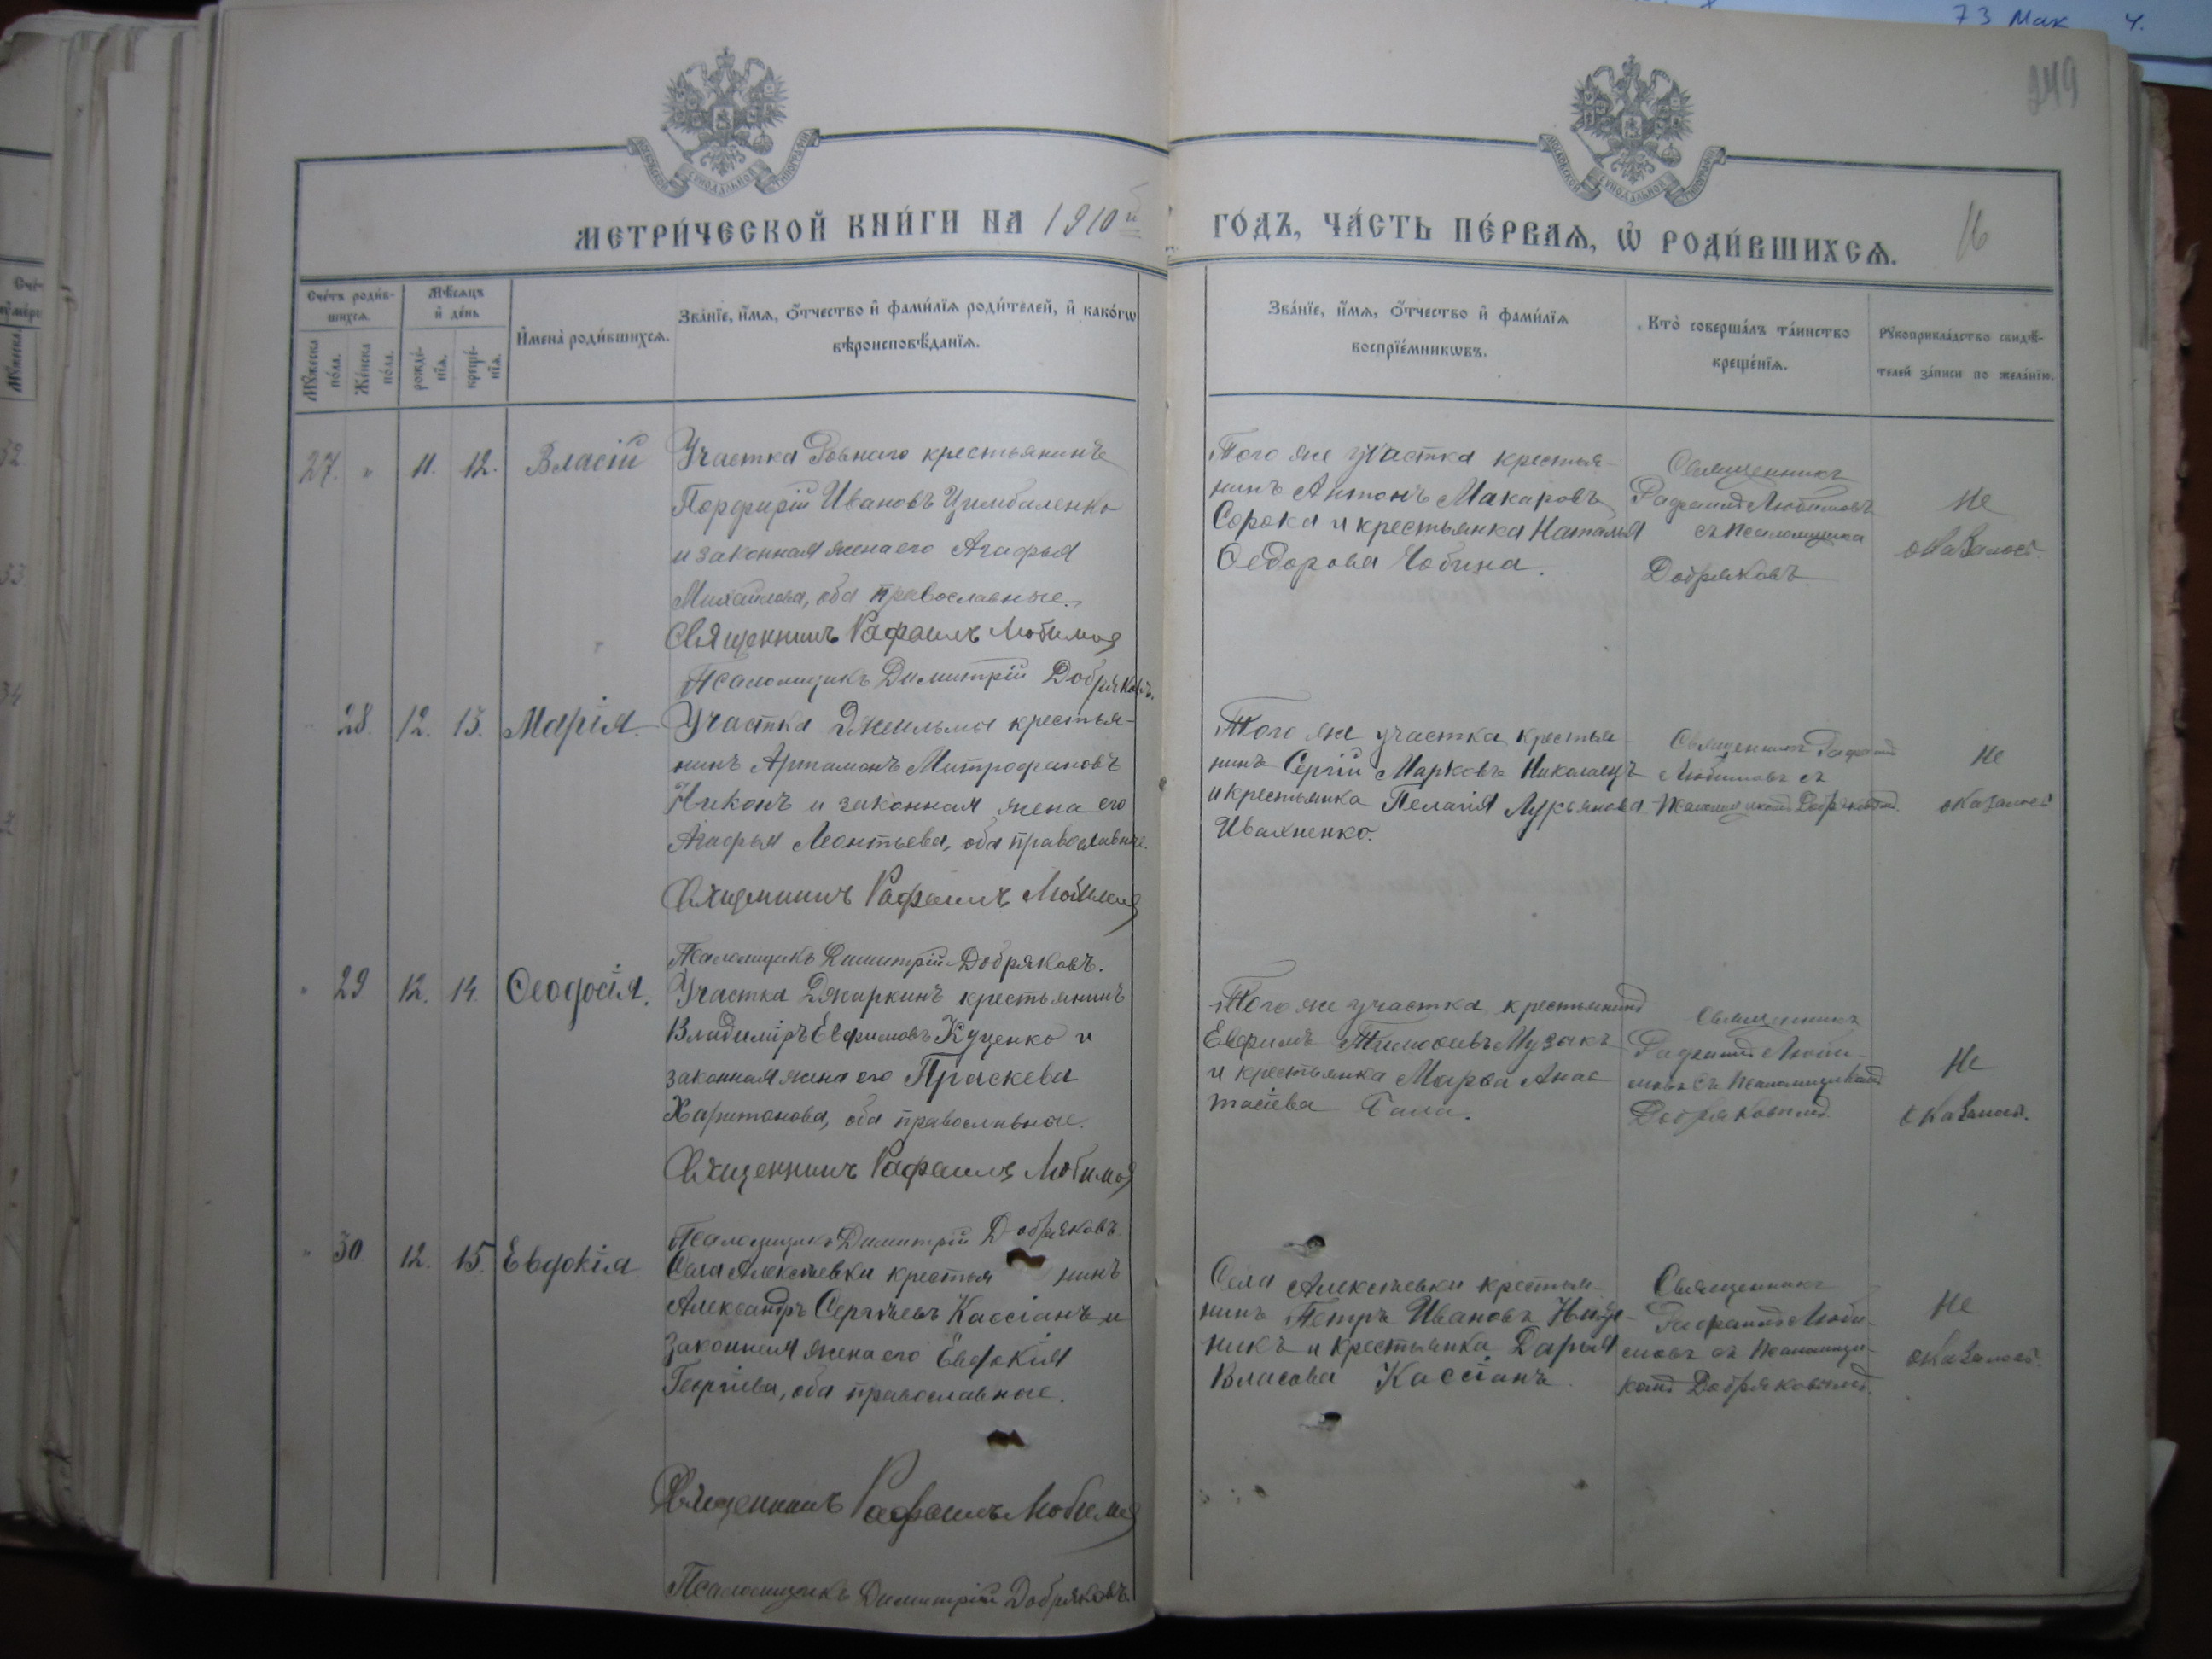 73 Мак ч.
249
МЕТРИ́ЧЕСКОЙ КНИ́ГИ НА 1910й
ГО́ДЪ, ЧА́СТЬ ПЕ́РВАѦ, Ѡ҆ РОДИ́ВШИХСѦ.
16
Сче́тъ роди́в-
шихсѧ.
Мꙋ́жеска по́ла.
Же́нска по́ла.
Мѣ́сѧцъ
и҆ де́нь
рожде́-
нїѧ.
креще́-
нїѧ.
И҆мена̀ роди́вшихсѧ.
Зва́нїе, и҆́мѧ, ѻ҆́тчество и҆ фами́лїѧ роди́телей, и҆ како́гѡ
вѣроисповѣ́данїѧ.
Зва́нїе, и҆́мѧ, ѻ҆́тчество и҆ фами́лїѧ
воспрїе́мникѡвъ.
Кто̀ соверша́лъ та́инство
креще́нїѧ.
Рꙋкоприкла́дство свидѣ́-
телей за́писи по жела́нїю.
27. " 11. 12. Власій
Участка Ровнаго крестьянинъ
Порфирій Ивановъ Цимбаленко
и законная жена его Агафья
Михайлова, оба православные.
Священникъ Рафаилъ Любимов
Псаломщикъ Димитрій Добряковъ.
Того же участка крестья-
нинъ Антонъ Макаровъ
Сорока и крестьянка Наталья
Ѳедорова
Священникъ
Рафаилъ Любимовъ
съ псаломщика
Добряковъ.
Не
оказалось.
" 28. 12. 13. Марія.
Участка Джельмы крестья-
нинъ Артамонъ Митрофановъ
Никонъ и законная жена его
Агафья Леонтьева, оба православные.
Священникъ Рафаилъ Любимов
Псаломщикъ Димитрій Добряковъ.
Того же участка крестья-
нинъ Сергій Марковъ Николаецъ
и крестьянка Пелагія Лукьянова
Ивахненко.
Священникъ Рафаилъ
Любимовъ съ
псаломщикомъ Добряковымъ.
Не
оказалось
" 29 12. 14. Ѳеодосія.
Участка Джаркинъ крестьянинъ
Владиміръ Евфимовъ Куценко и
законная жена его Праскева
Харитонова, оба православные.
Священникъ Рафаилъ Любимов
Псаломщикъ Димитрій Добряковъ.
Того же участка крестьянинъ
Евфимъ Тимоѳевъ Музыкъ
и крестьянка Марѳа Анас
тасіева
Священникъ
Рафаилъ Люби-
мовъ съ псаломщикомъ
Добряковымъ.
Не
оказалось.
" 30. 12. 15. Евдокія
Села Алексѣевки крестья нинъ
Александръ Сергѣевъ Кассіанъ и
законная жена его Евдокія
Георгіева, оба православные.
Священникъ Рафаилъ Любимов
Псаломщикъ Димитрій Добряковъ.
Села Алексѣевки крестья-
нинъ Петръ Ивановъ
и крестьянка Дарья
Власова Кассіанъ.
Священникъ
Рафаилъ Люби-
мовъ съ псаломщи-
комъ Добряковымъ.
Не
оказалось.